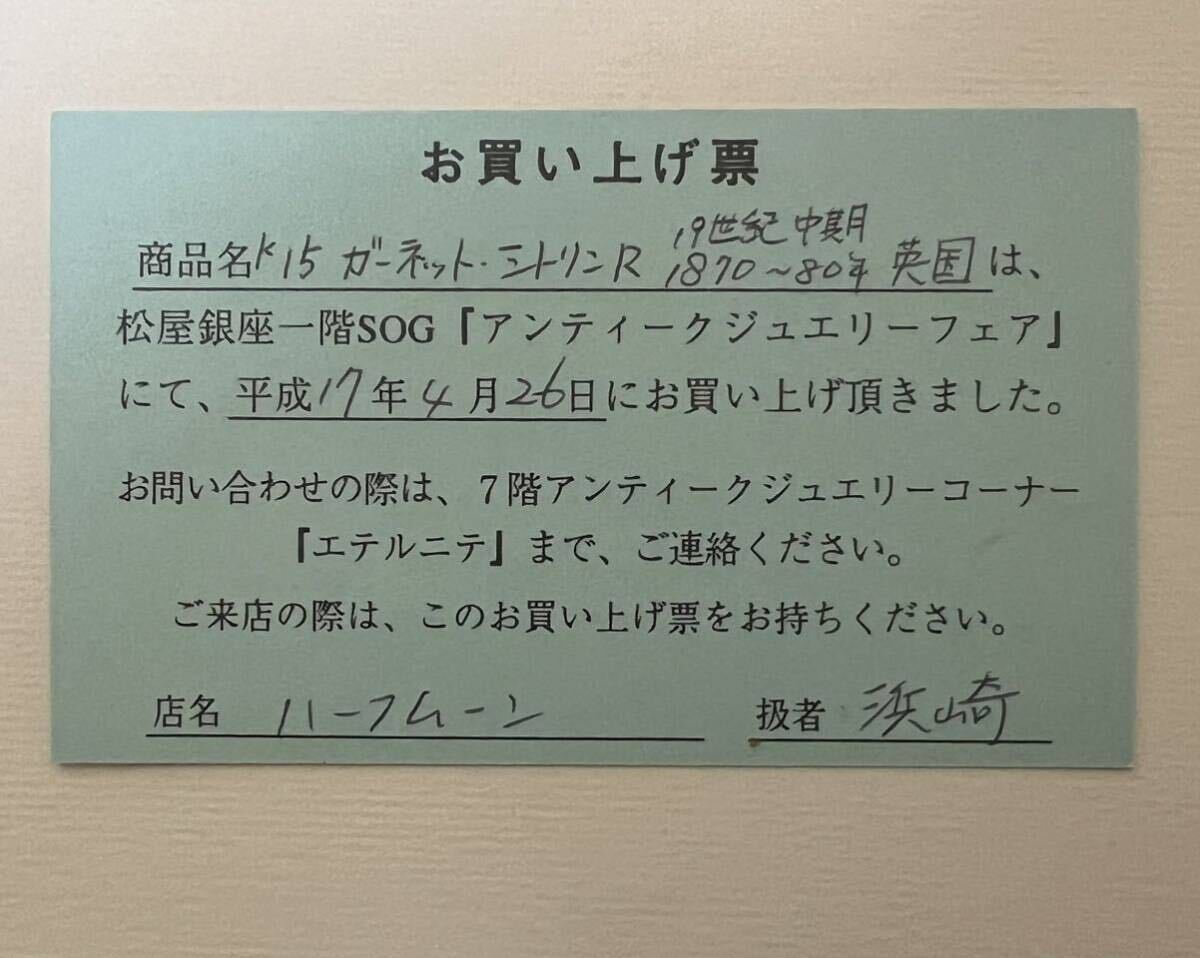 お買い上げ票
19世紀中期
商品名 K15 ガーネット・シトリンR 1870～80年 英国 は、
松屋銀座一階SOG『アンティークジュエリーフェア』
にて、平成17年4月26日にお買い上げ頂きました。
お問い合わせの際は、７階アンティークジュエリーコーナー
『エテルニテ』まで、ご連絡ください。
ご来店の際は、このお買い上げ票をお持ちください。
店名 ハーフムーン 扱者 浜崎